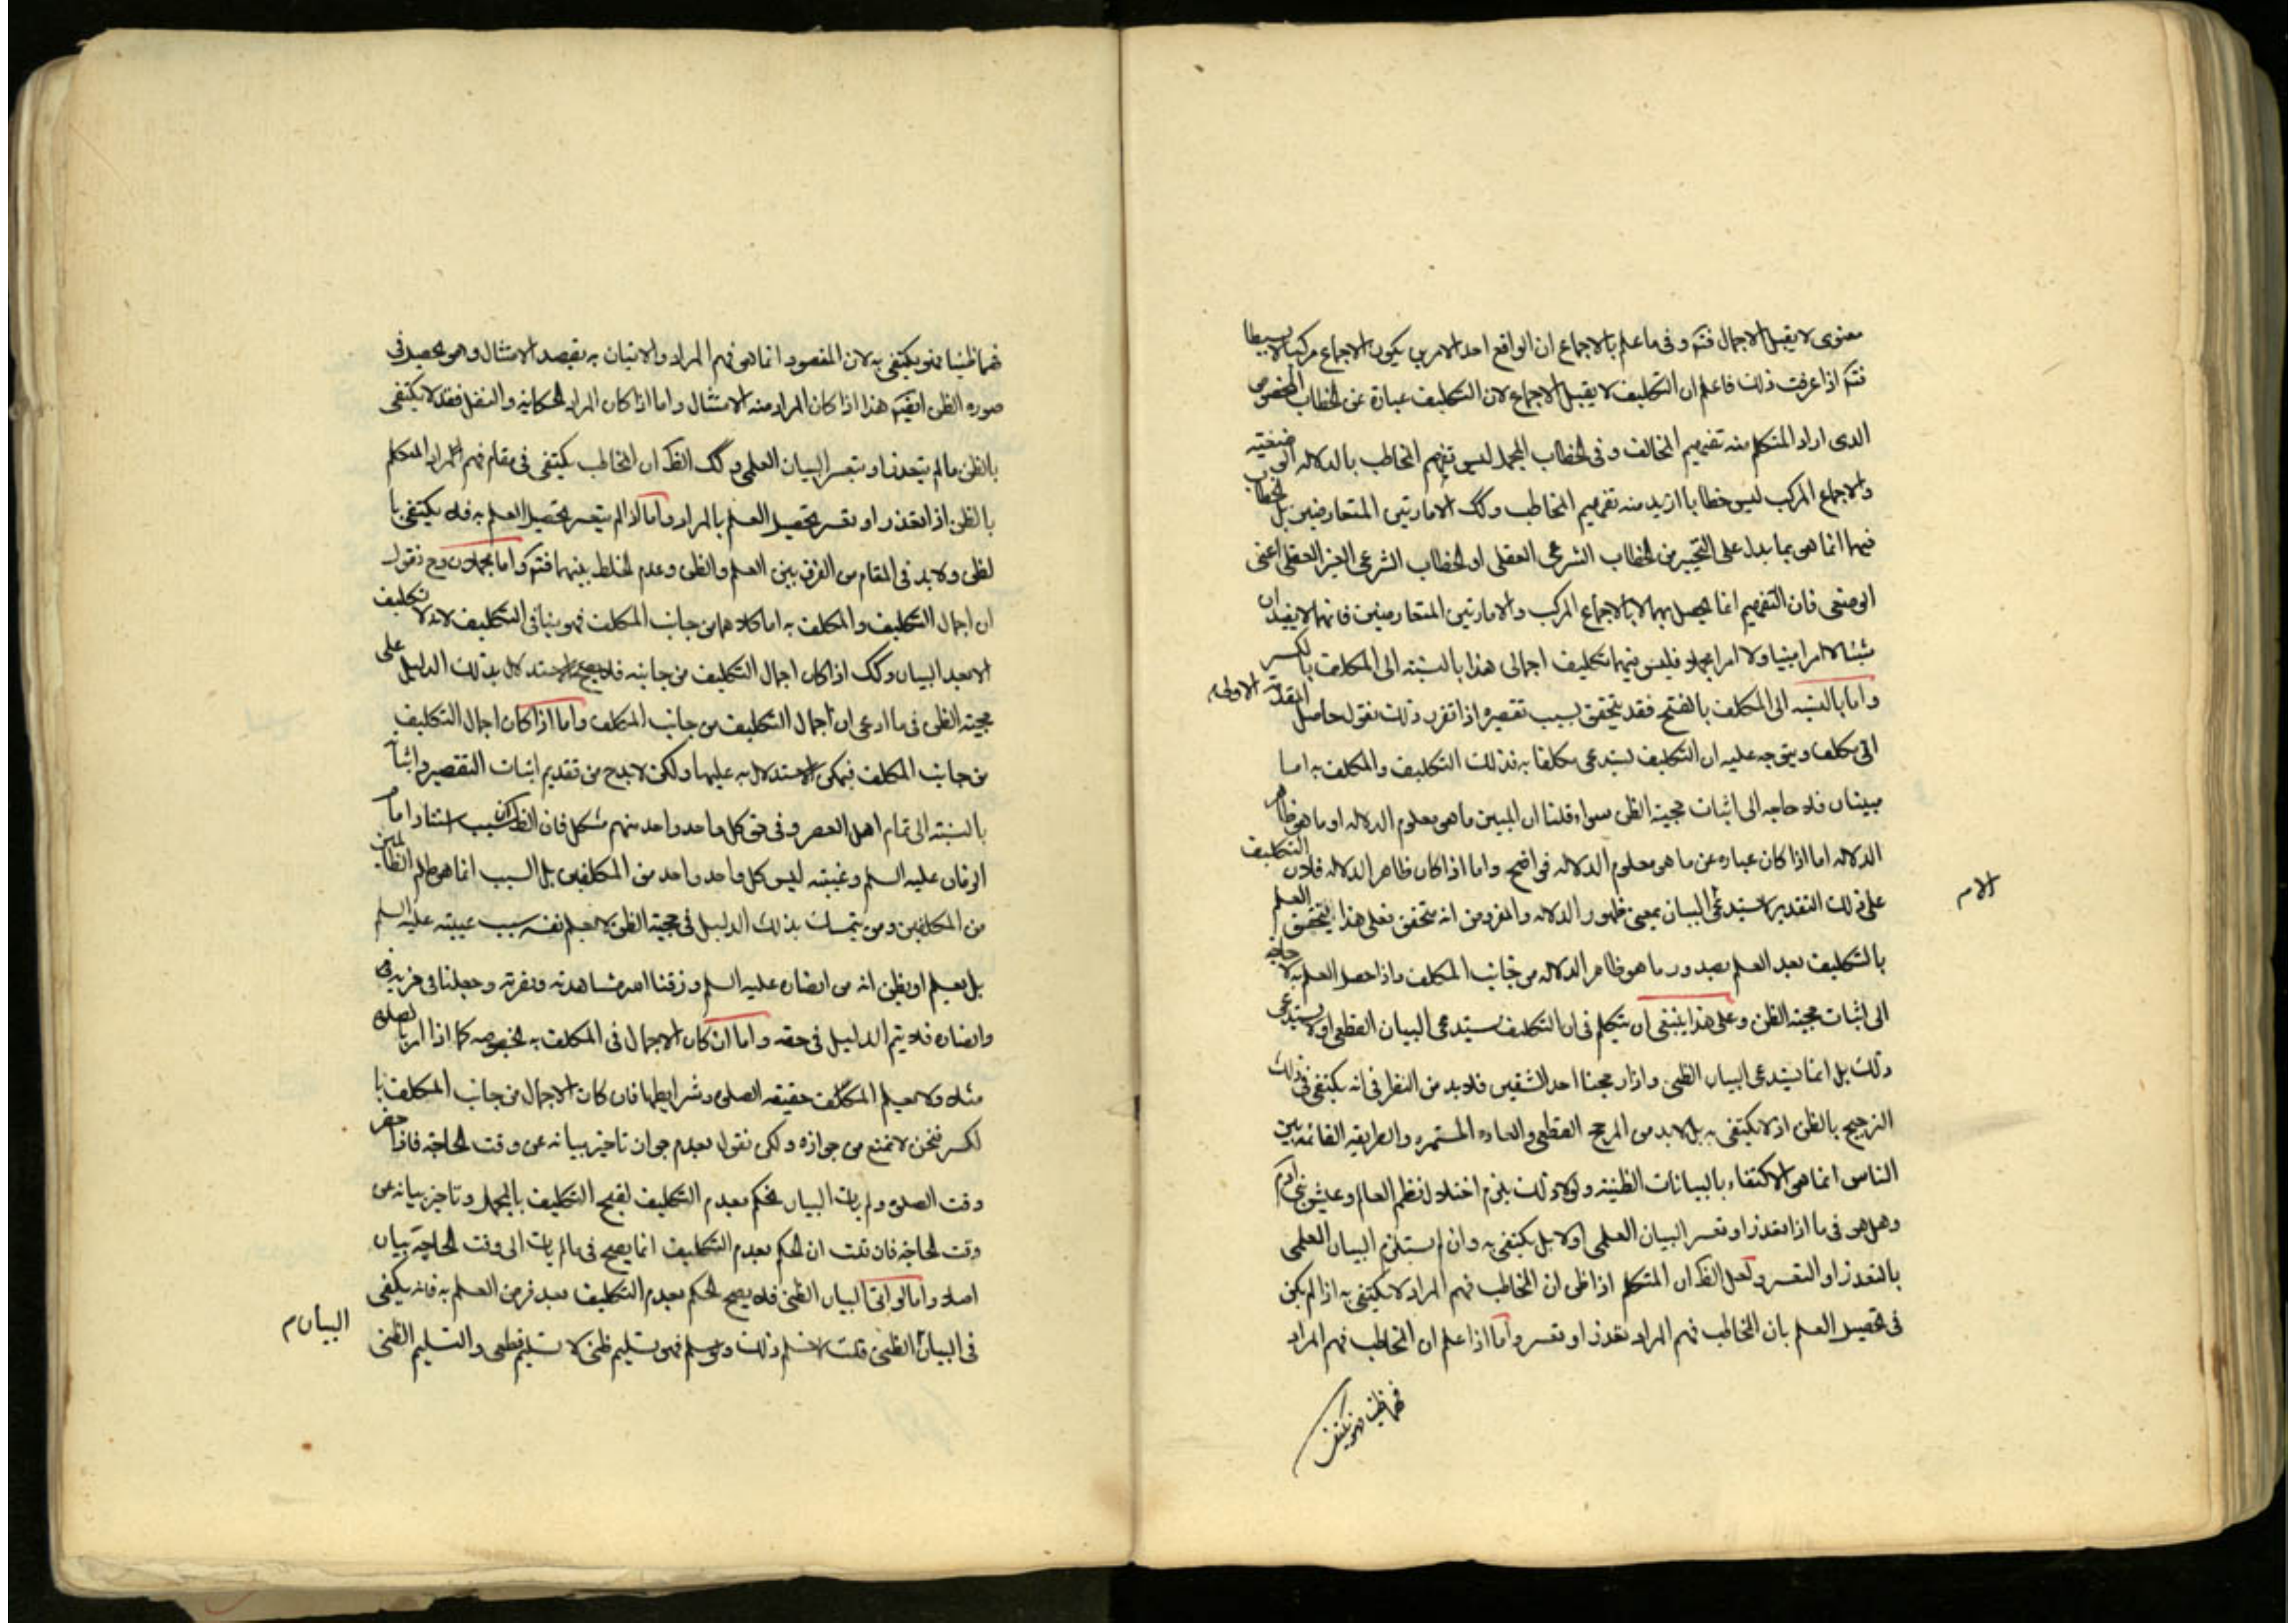 معنوی لا یقبل الاجمال فتم و فی ما علم بالاجماع ان الواقع احد الامرین یکون الاجماع مرکبا لا بسیطا
فتم اذا عرفت ذلک فاعلم ان التکلیف لا یقبل الاجماع لان التکلیف عبارة عن الخطاب المخصوص
الذی اراد المتکلم منه تفهیم المخالف و فی الخطاب المجمل لیس تفهیم المخاطب بالدلاله
والاجماع المرکب لیس خطابا ارید منه تفهیم المخاطب وکک الامارتین المتعارضین بل الخطاب
فیهما انما هی بما یدل علی التخییر من الخطاب الشرعی العقلی او الخطاب الشرعی الغیر العقلی اعنی
الوضعی فان التفهیم انما یحصل بهما لا بالاجماع المرکب والامارتین المتعارضین فانهما لا یفیدان
شیئا لا امرا مبینا ولا امرا مجملا فلیس فیهما تکلیف اجمالی هذا بالنسبه الی المکلف بالکسر
واما بالنسبه الی المکلف بالفتح فقد یتحقق بسبب تقصیره اذا تقرر ذلک نقول حاصل المقدمة الاولی
انی مکلف ویتوجه علیه ان التکلیف یستدعی مکلفا به فذلک التکلیف والمکلف به اما
مبینان فلا حاجه الی اثبات حجیة الظن سواء قلنا ان المبین ما هی معلوم الدلاله او ما هی ظاهر
الدلاله اما اذا کان عباره عن ما هی معلوم الدلاله فواضح واما اذا کان ظاهر الدلاله فلان التکلیف
علی ذلک التقدیر لا یستدعی البیان بمعنی ظهور الدلاله والمفروض انه متحقق فعلی هذا یتحقق العلم
الام
بالتکلیف بعد العلم بصدور ما هو ظاهر الدلاله من جانب المکلف واذا حصل العلم به لا حاجه
الی اثبات حجیة الظن وعلی هذا ینبغی ان یتکلم فی ان التکلیف یستدعی البیان القطعی او لا یستدعی
ذلک بل انما یستدعی البیان الظنی واذا رجحنا احد الشقین فلا بد من النظر فی انه یکتفی فی ذلک
الترجیح بالظن او لا یکتفی به بل لا بد من المرجح القطعی والعاده المستمره والطریقه القائمه بین
الناس انما هی الاکتفاء بالبیانات الظنیة ولولا ذلک یلزم اختلال نظم العالم وعیش بنی آدم
وهل هو فی ما اذا تعذر او تعسر البیان العلمی او لا بل یکتفی به وان لم یستلزم البیان العلمی
بالتعذر او التعسر ولعل الظ ان المتکلم اذا ظن ان المخاطب فهم المراد لا یکتفی به اذا لم یکن
فی تحصیل العلم بان المخاطب فهم المراد تعذر او تعسر واما اذا علم ان المخاطب فهم المراد
فهما ظنیا فهو یکتفی
فهما ظنیا فهو یکتفی به لان المقصود انما هی فهم المراد والاتیان به بقصد الامتثال وهو یحصل فی
صوره الظن ایضا فتم هذا اذا کان المراد منه الامتثال واما اذا کان المراد الحکایة والنقل فقد لا یکتفی
بالظن ما لم یتعذر او یتعسر البیان العلمی وکک الظ ان المخاطب یکتفی فی مقام فهم المراد المتکلم
بالظن اذا تعذر او تعسر تحصیل العلم بالمراد واما اذا لم یتعسر تحصیل العلم به فلا یکتفی با
لظن ولا بد فی المقام من الفرق بین العلم والظن وعدم الخلط بینهما فتم واما مجملان وح نقول
ان اجمال التکلیف والمکلف به اما کلاهما من جانب المکلف فهو ینافی التکلیف لانه لا تکلیف
الا بعد البیان وکک اذا کان اجمال التکلیف من جانبه فلا یصح الاستدلال بذلک الدلیل علی
حجیة الظن فی ما ادعی ان اجمال التکلیف من جانب المکلف واما اذا کان اجمال التکلیف
من جانب المکلف فیمکن الاستدلال به علیها ولکن لا بد ح من تقدیم اثبات التقصیر واثباته
بالنسبة الی تمام اهل العصر وفی حق کل واحد واحد منهم مشکل فان الظ ان سبب استتار امام
الزمان علیه السلم وغیبته لیس کل واحد واحد من المکلفین بل السبب انما هو ظلم الظالمین
من المکلفین ومن یتمسک بذلک الدلیل فی حجیة الظن لا یعلم نفسه سبب غیبته علیه السلم
بل یعلم او یظن انه من انصاره علیه السلم ورزقنا الله مشاهدته ونصرته وجعلنا فی حزبه
وانصاره فلا یتم الدلیل فی حقه واما ان کان الاجمال فی المکلف به بخصوصه کما اذا امر بالصلوة
مثلا ولا یعلم المکلف حقیقه الصلوة وشرایطها فان کان الاجمال من جانب المکلف با
لکسر فنحن لا نمنع من جوازه ولکن نقول بعدم جواز تاخیر بیانه عن وقت الحاجة فاذا حضر
وقت الصلوة ولم یات البیان نحکم بعدم التکلیف لقبح التکلیف بالمجمل وتاخیر بیانه عن
وقت الحاجة فان قلت ان الحکم بعدم التکلیف انما یصح فی ما لم یات الی وقت الحاجة بیان
اصلا واما لو اتی البیان الظنی فلا یصح الحکم بعدم التکلیف بعد فرض العلم به فانه یکفی
البیان م
فی البیان الظنی قلت لا نسلم ذلک ولو سلم فهو تسلیم ظنی لا تسلیم قطعی والتسلیم الظنی